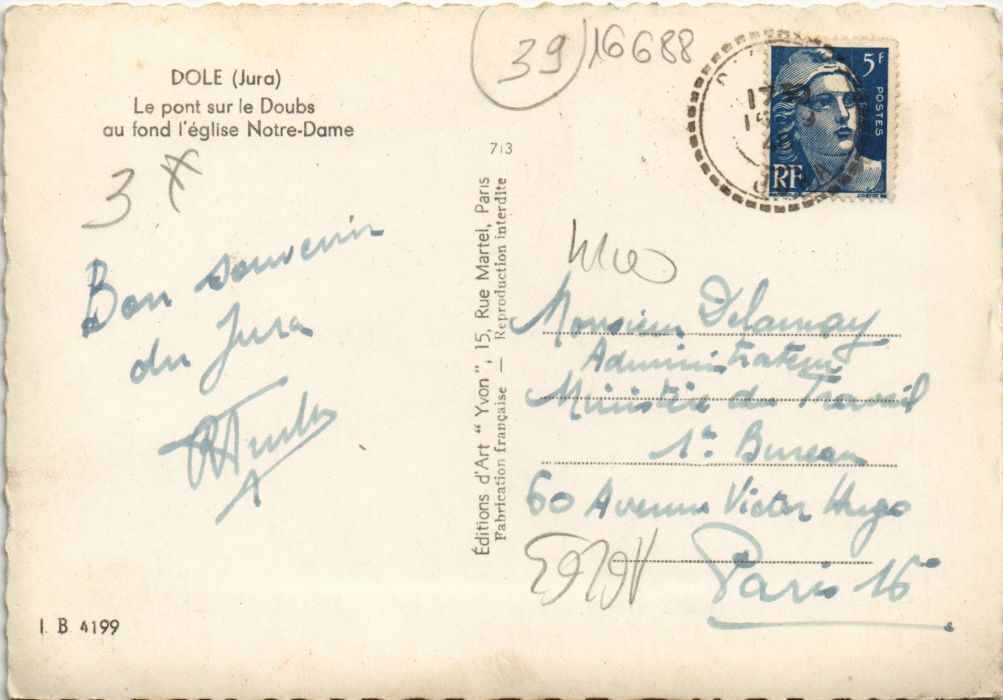 DOLE (Jura)
Le pont sur le Doubs
au fond l'église Notre-Dame
3
Bon souvenir
du Jura
I B 4199
713
Éditions d'Art "Yvon", 15, Rue Martel, Paris
Fabrication française — Reproduction interdite
39
16688
5F
POSTES
RF
Monsieur Delaunay
Administrateur
Ministère du Travail
1er Bureau
60 Avenue Victor Hugo
Paris 16e